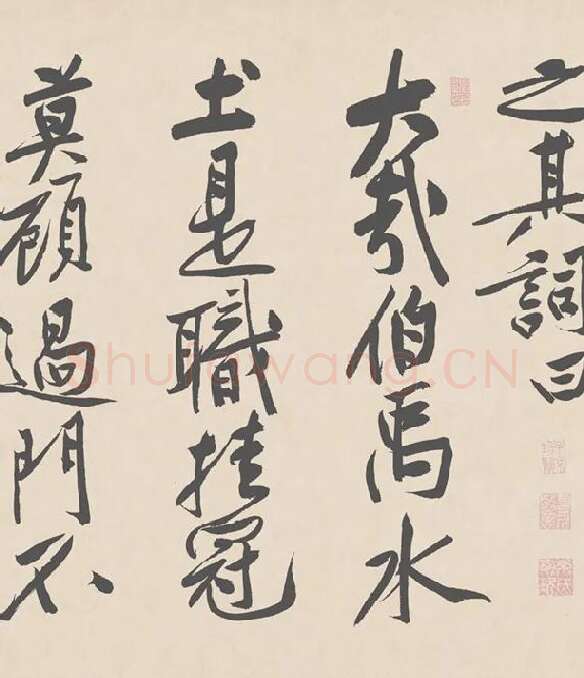 之其詞曰
大哉伯禹水
土是職挂冠
莫顧過門不
shufawang.CN